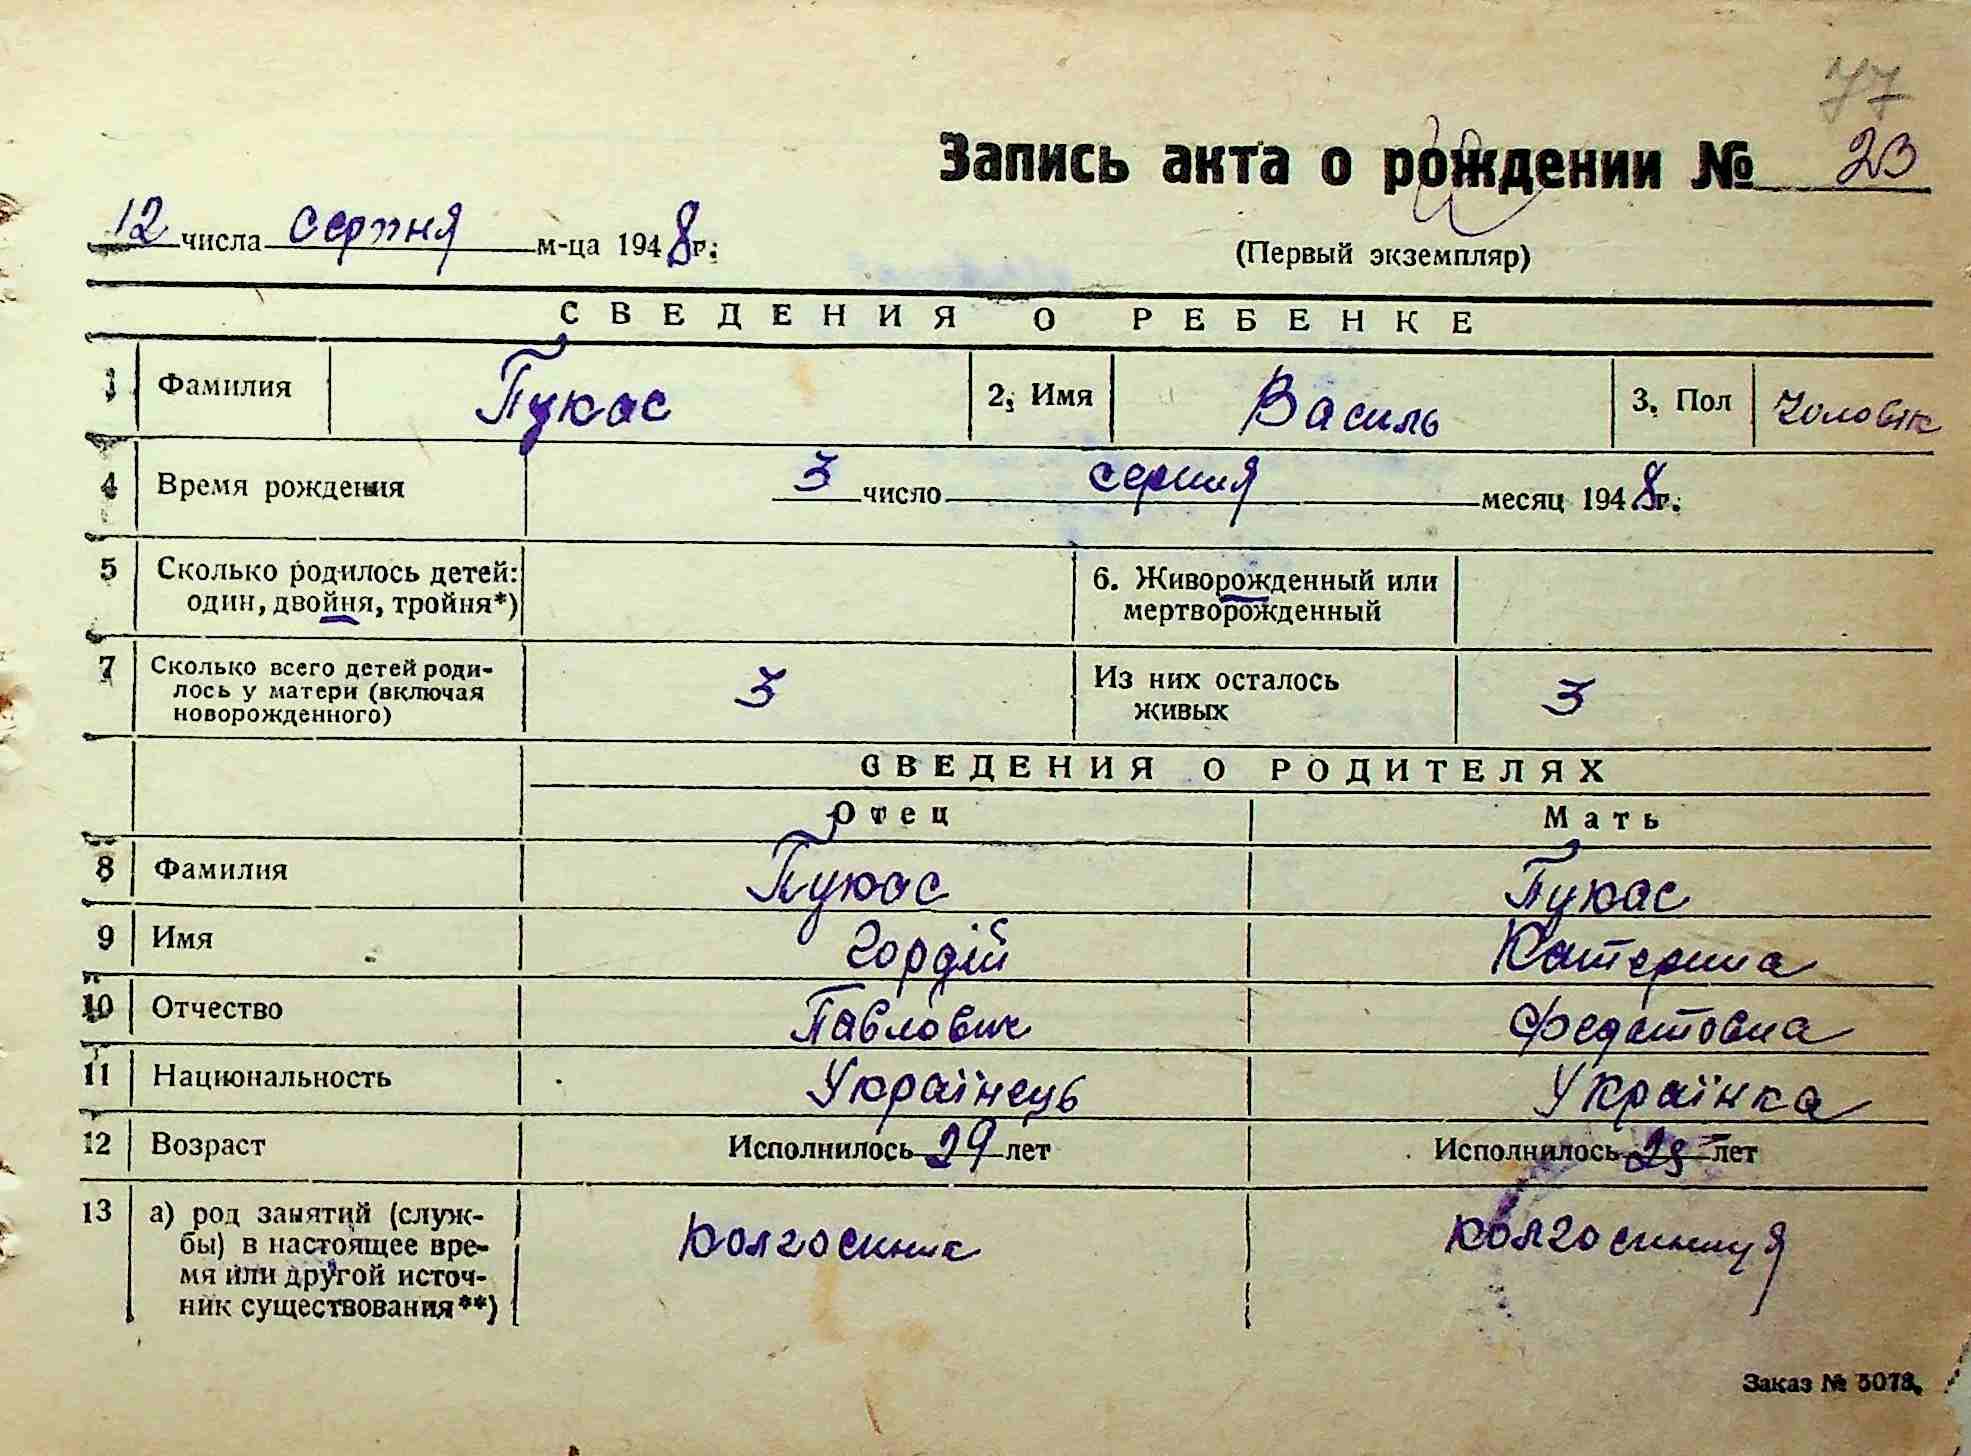 77
Запись акта о рождении № 23
12 числа серпня м-ца 1948 г.
(Первый экземпляр)
СВЕДЕНИЯ О РЕБЕНКЕ
1 Фамилия Пукас 2. Имя Василь 3. Пол Чоловік
4 Время рождения 3 число серпня месяц 1948 г.
5 Сколько родилось детей: 6. Живорожденный или
один, двойня, тройня*) мертворожденный
7 Сколько всего детей роди- 3 Из них осталось 3
лось у матери (включая живых
новорожденного)
СВЕДЕНИЯ О РОДИТЕЛЯХ
Отец Мать
8 Фамилия Пукас Пукас
9 Имя Гордій Катерина
10 Отчество Павлович Федотовна
11 Национальность Українець Українка
12 Возраст Исполнилось 29 лет Исполнилось лет
13 а) род занятий (служ- Колгоспник Колгоспниця
бы) в настоящее вре-
мя или другой источ-
ник существования**)
Заказ № 5078.